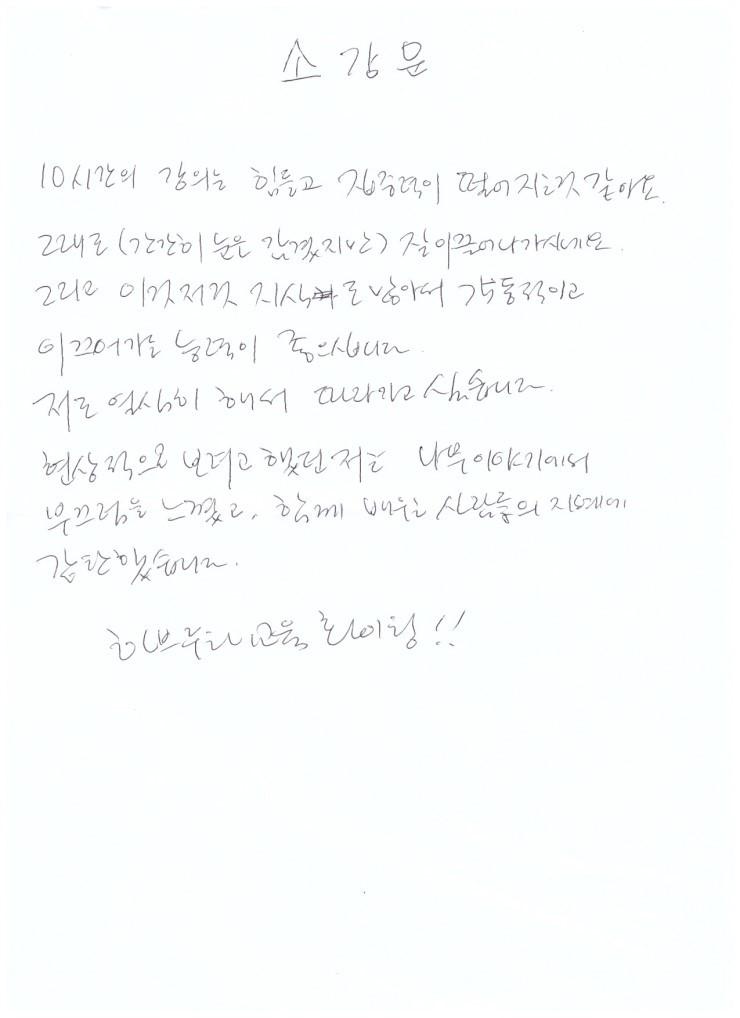 소감문
10시간의 강의는 힘들고 집중력이 떨어지는것 같아요.
그래도 (간간히 눈은 감겼지만) 잘 이끌어나가시네요.
그리고 이것저것 지식도 많아서 감동적이고
이끄어가는 능력이 좋으십니다.
저도 열심히 해서 따라가고 싶습니다.
현상적으로 보려고 했던 저는 나무이야기에서
부끄럼을 느꼈고, 함께 배우는 사람들의 지혜에
감탄했습니다.
하브루타 교육 화이팅!!